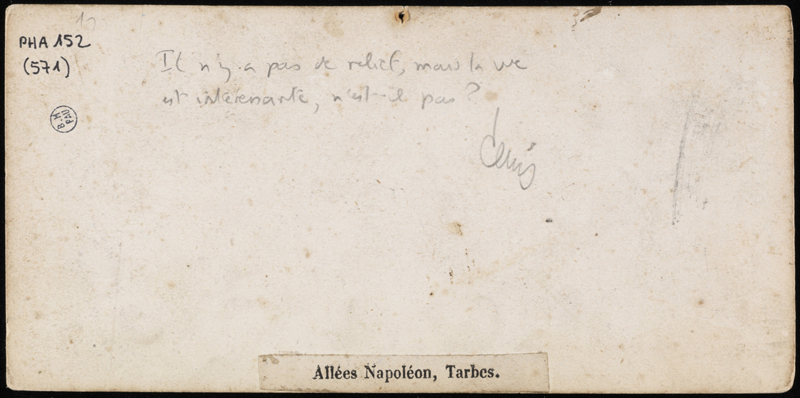 PHA 152
(571)
Il n'y a pas de relief, mais la vue
est intéressante, n'est-il pas ?
Denis
B.M
PAU
Allées Napoléon, Tarbes.